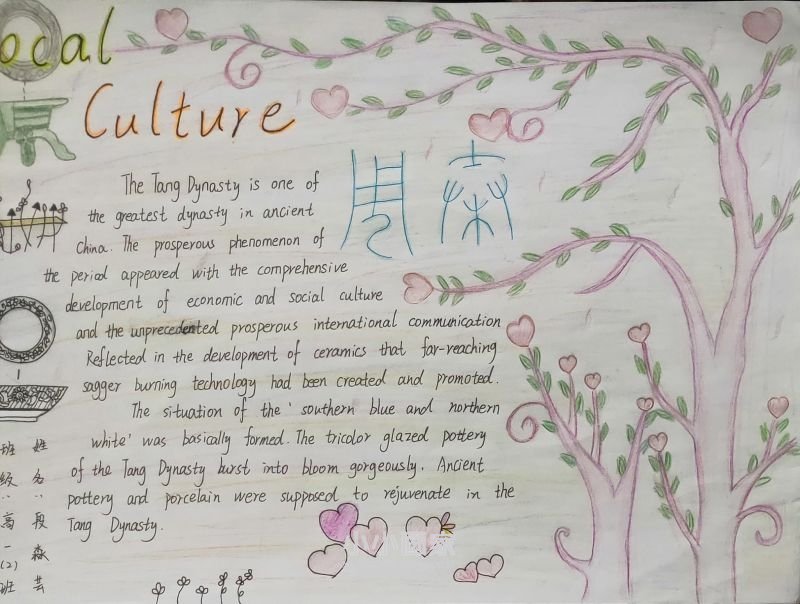 ocal
Culture
The Tang Dynasty is one of
the greatest dynasty in ancient
China. The prosperous phenomenon of
the period appeared with the comprehensive
development of economic and social culture
and the unprecedented prosperous international communication
Reflected in the development of ceramics that far-reaching
sagger burning technology had been created and promoted.
The situation of the 'southern blue and northern
white' was basically formed. The tricolor glazed pottery
of the Tang Dynasty burst into bloom gorgeously. Ancient
pottery and porcelain were supposed to rejuvenate in the
Tang Dynasty.
班级：高一(2)班
姓名：段森芸